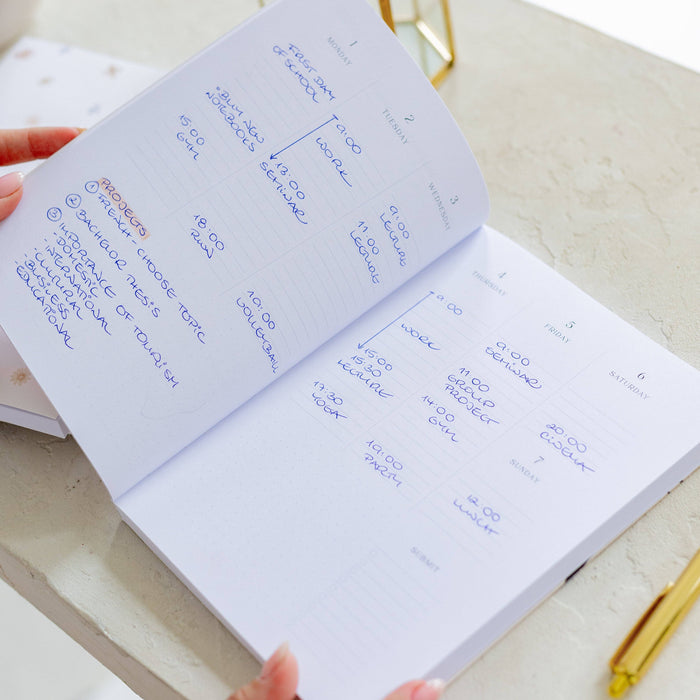 1
MONDAY
FIRST DAY
OF SCHOOL
• BUY NEW
NOTEBOOKS
15:00
GYM
2
TUESDAY
9:00
WORK
13:00
SEMINAR
18:00
RUN
3
WEDNESDAY
9:00
LECTURE
11:00
LECTURE
19:00
VOLLEYBALL
PROJECTS
1 FRENCH - CHOOSE TOPIC
2 BACHELOR THESIS
3 IMPORTANCE OF TOURISM
- DOMESTIC
- INTERNATIONAL
- CULTURAL
- BUSINESS
- EDUCATIONAL
4
THURSDAY
9:00
WORK
15:00
15:30
LECTURE
17:30
YOGA
5
FRIDAY
9:00
SEMINAR
11:00
GROUP
PROJECT
14:00
GYM
19:00
PARTY
6
SATURDAY
20:00
CINEMA
7
SUNDAY
12:00
LUNCH
SUBMIT